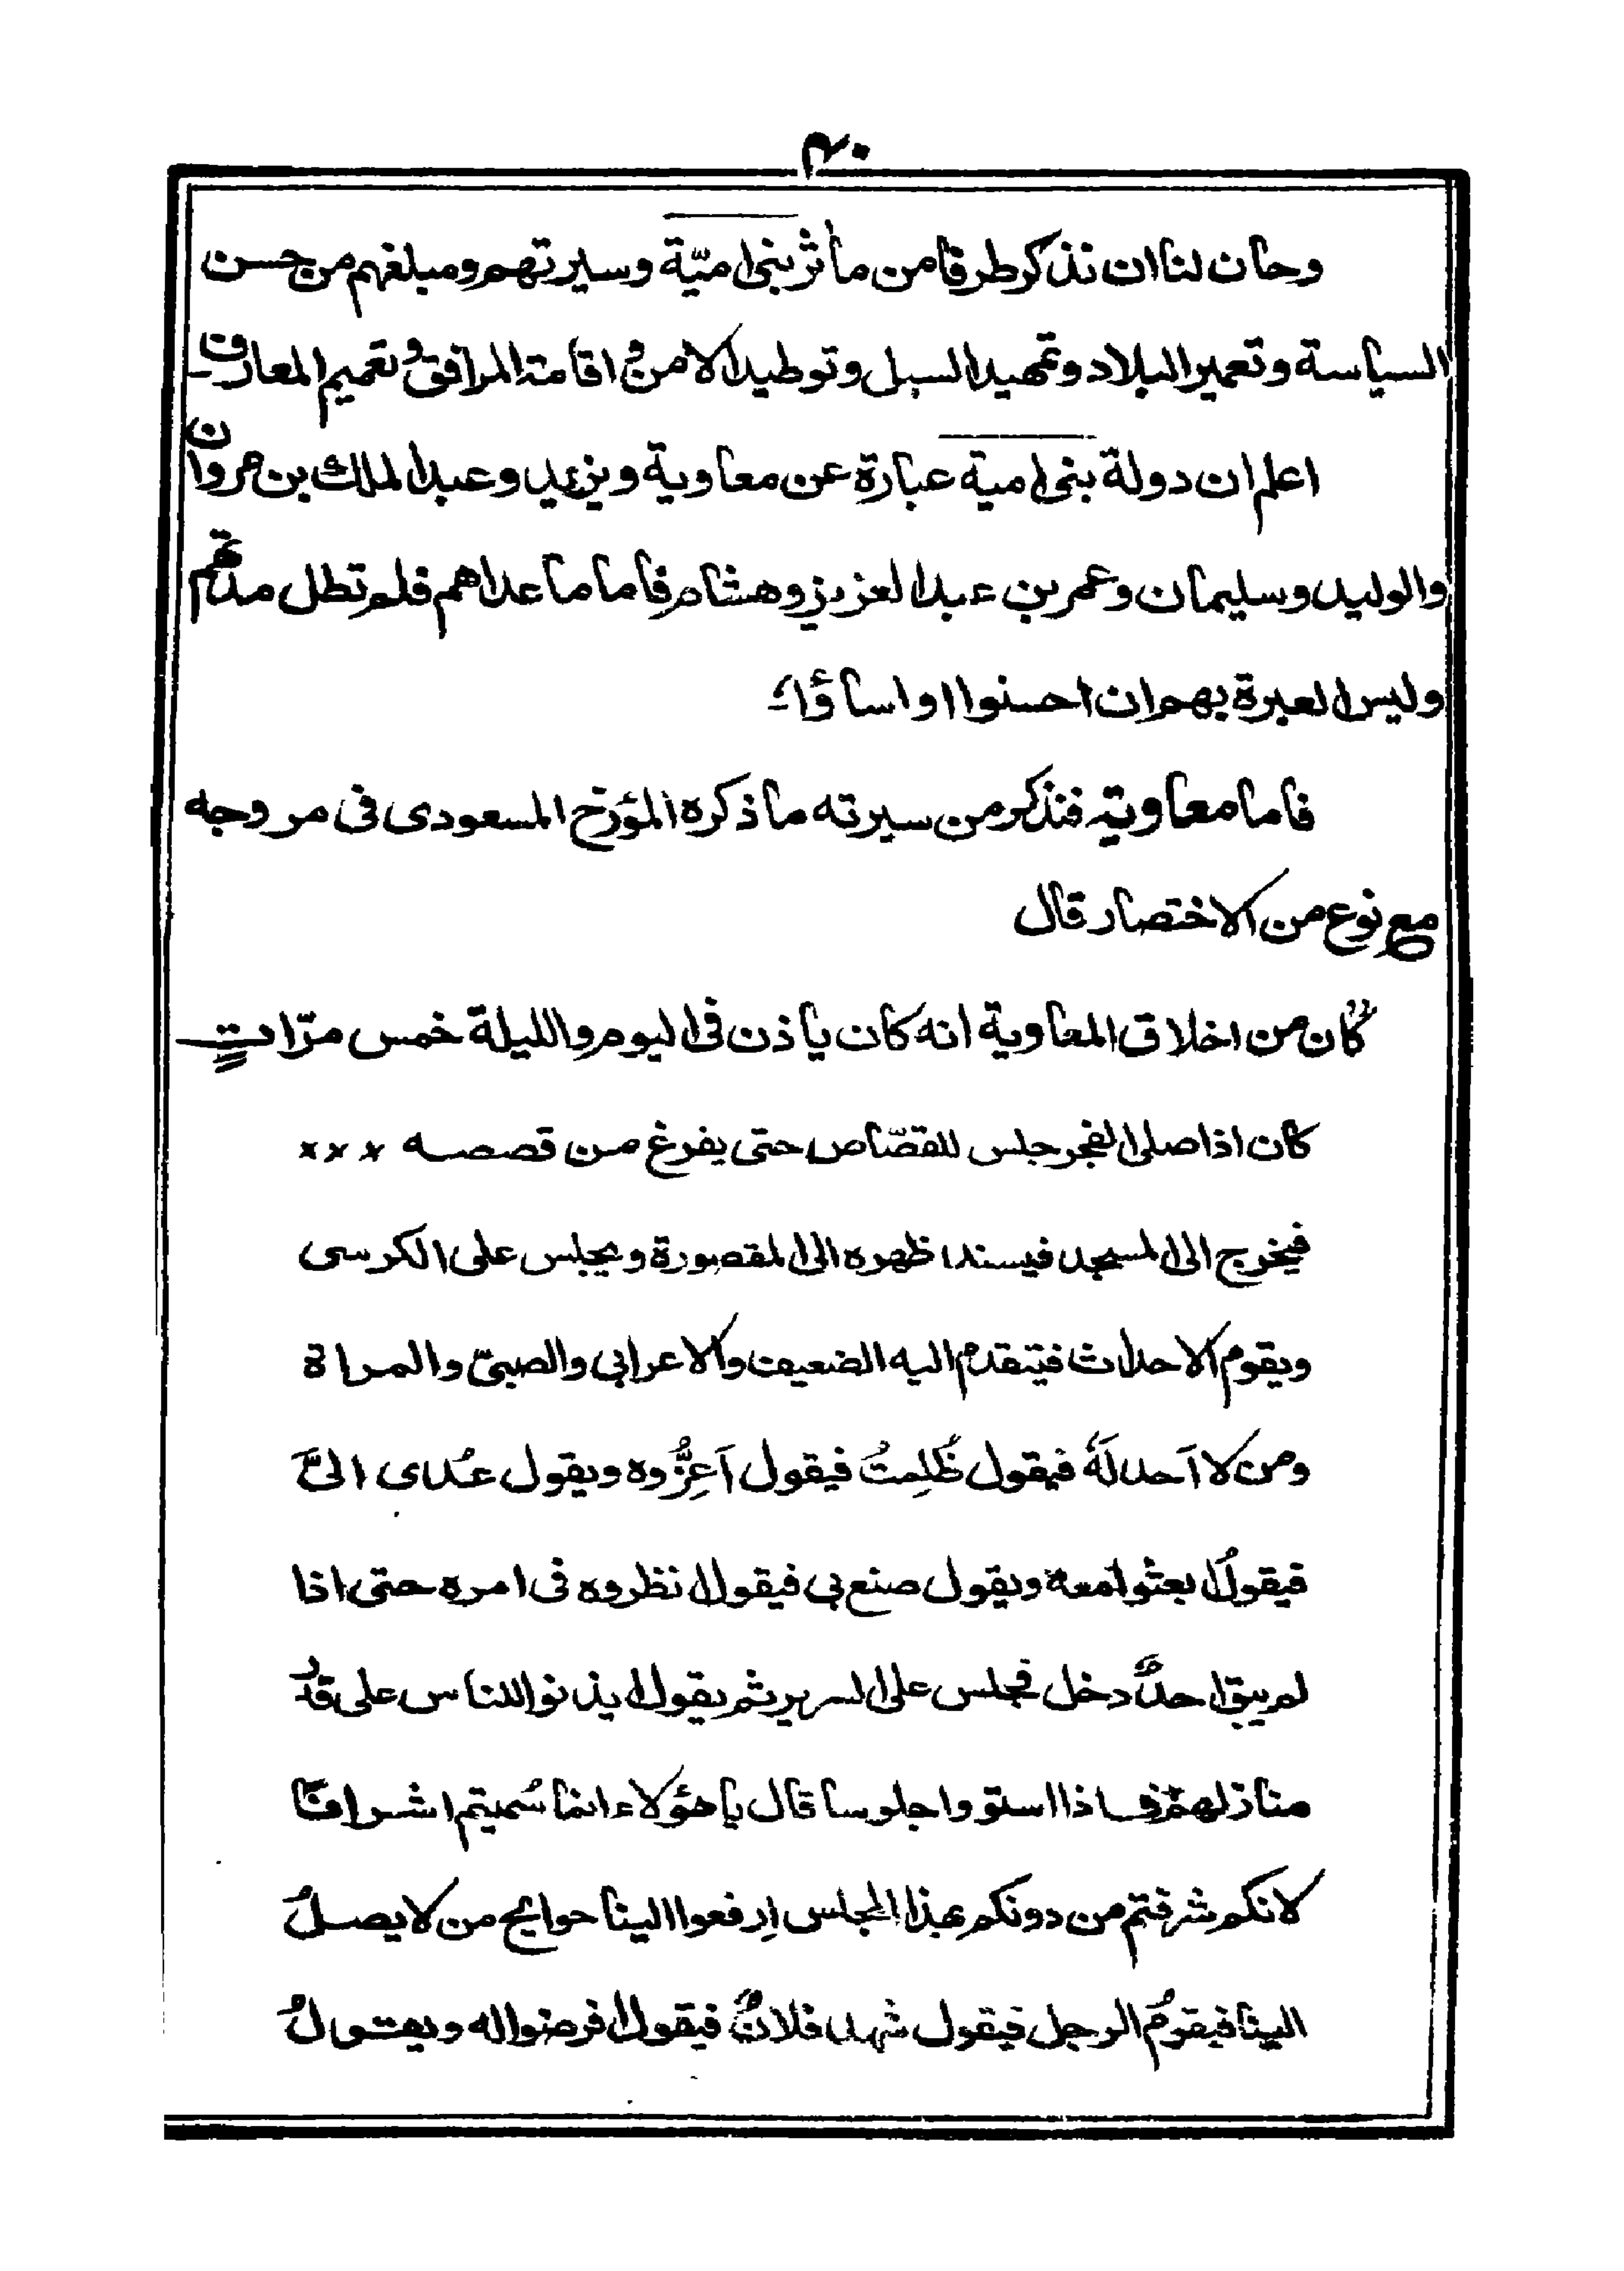 ۴۰
وحان لنا ان نذكر طرفا من مأثر بنی امیّة وسيرتهم ومبلغهم من حسن
السياسة وتعمير البلاد وتمهيد السبل وتوطيد الامن و اقامة المرافق و تعميم المعارف
اعلم ان دولة بنی امية عبارة عن معاوية ويزيد وعبد الملك بن مروان
والوليد وسليمان وعمر بن عبد العزيز وهشام فاما ما عداهم فلم تطل مدتهم
وليس العبرة بهم ان احسنوا او اساؤا
فاما معاوية فنذكر من سيرته ما ذكره المؤرخ المسعودی فی مروجه
مع نوع من الاختصار قال
”كان من اخلاق المعاوية انه كان ياذن فی اليوم والليلة خمس مرّاتٍ
كان اذا صلی الفجر جلس للقصّاص حتی يفرغ من قصصه ×××
فيخرج الی المسجد فيسند ظهره الی المقصورة ويجلس علی الكرسی
ويقوم الاحداث فيتقدم اليه الضعيف والاعرابی والصبیّ والمراة
ومن لا اَحد لَهٗ فيقول ظُلِمتُ فيقول اَعِزُّوه ويقول عُدی الیَّ
فيقولُ ابعثوا معهٗ ويقول صنع بی فيقول انظروه فی امره حتی اذا
لم يبق احدٌ دخل فجلس علی السرير ثم يقول ايذنوا للناس علی قدر
منازلهم فاذا استووا جلوسا قال يا هؤلاء انما سُميتم اشرافًا
لانكم شرفتم من دونكم بهذا المجلس اِرفعوا الينا حوايج من لا يصلُ
الينا فيقومُ الرجل فيقول شهد فلانٌ فيقول افرضوا له ويقولُ